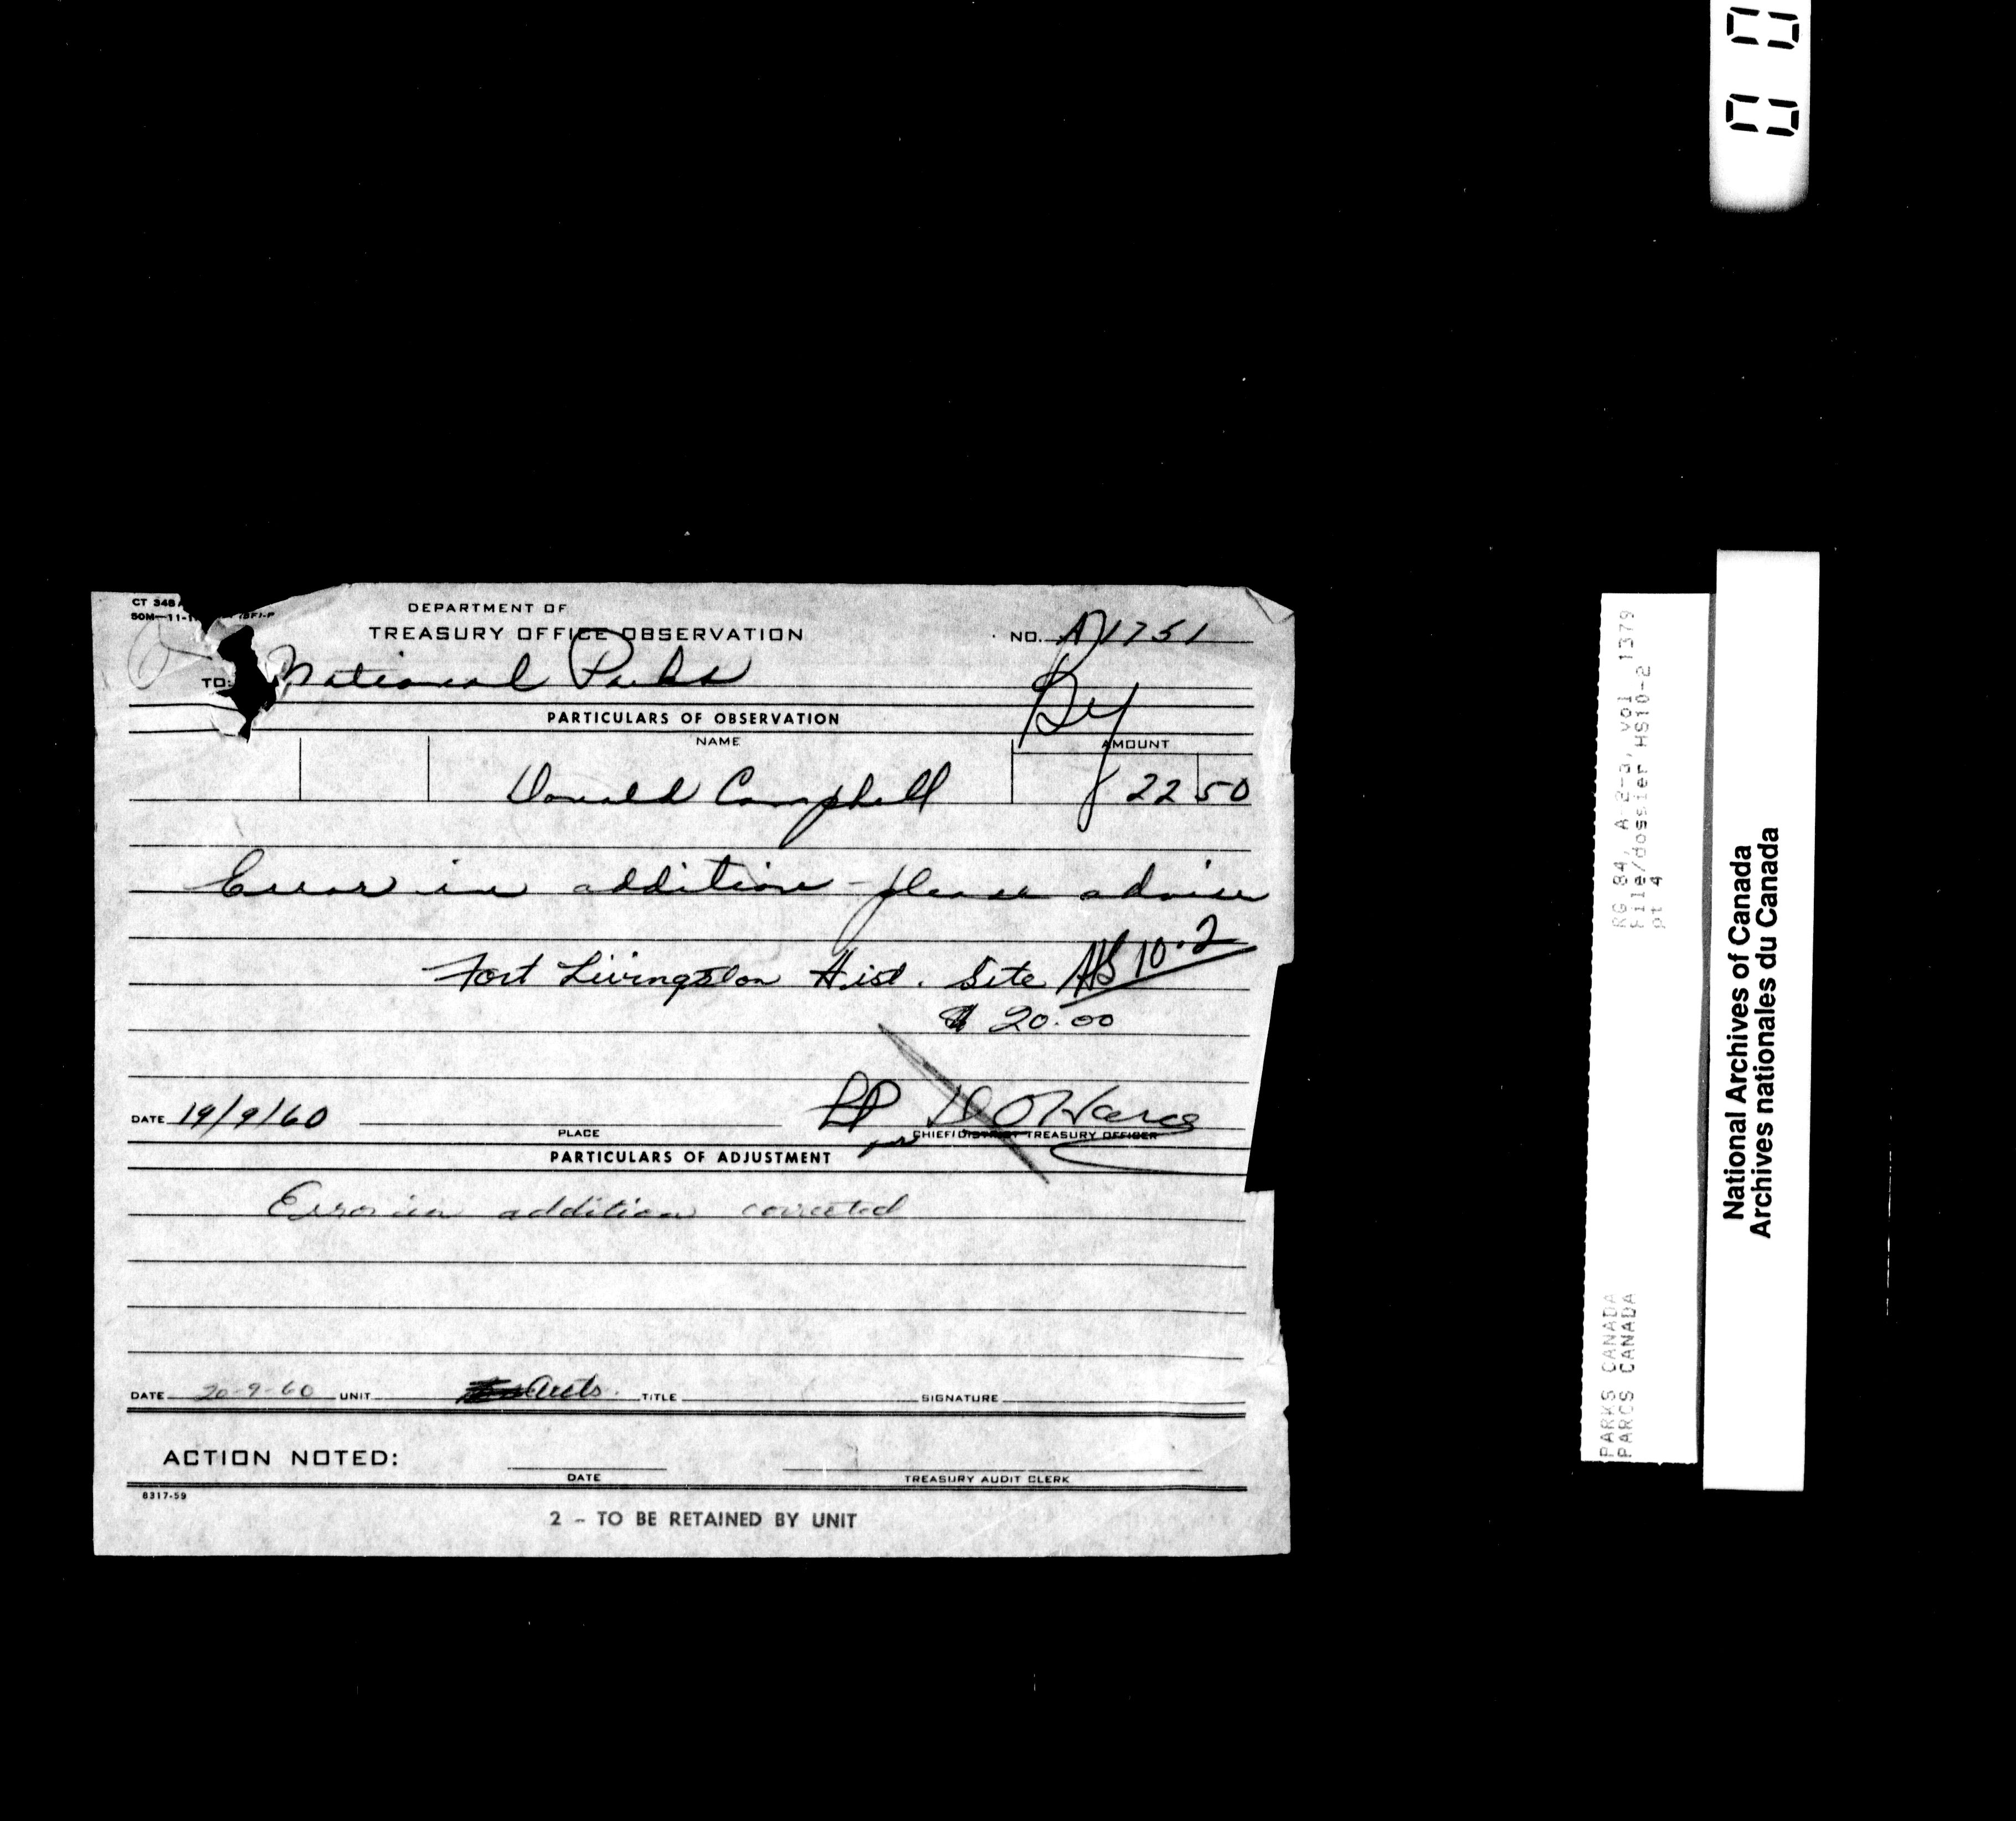 CT 348
50M—11-
DEPARTMENT OF
TREASURY OFFICE OBSERVATION
NO. A1751
TO: National Parks
PARTICULARS OF OBSERVATION
NAME
AMOUNT
Donald Campbell 22 50
Error in addition - please advise
Fort Livingston Hist. Site HS 10-2
$ 20.00
DATE 19/9/60
PLACE
CHIEF/DISTRICT TREASURY OFFICER
PARTICULARS OF ADJUSTMENT
Error in addition corrected
DATE 20-9-60 UNIT Accts. TITLE SIGNATURE
ACTION NOTED:
DATE
TREASURY AUDIT CLERK
8317-59
2 - TO BE RETAINED BY UNIT
RG 84, A-2-a, vol 1379
File/dossier HS10-2
pt 4
PARKS CANADA
PARCS CANADA
National Archives of Canada
Archives nationales du Canada